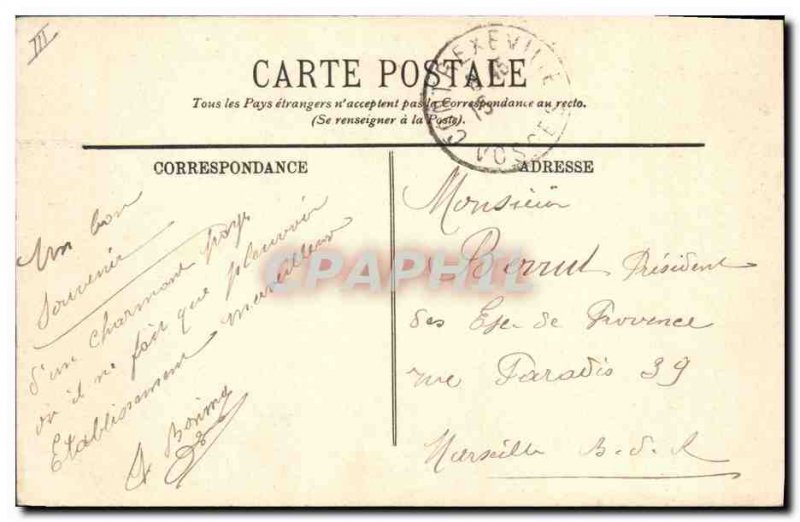 III
CARTE POSTALE
Tous les Pays étrangers n'acceptent pas la Correspondance au recto.
(Se renseigner à la Poste).
CONTREXÉVILLE
VOSGES
CORRESPONDANCE
ADRESSE
Un bon
Souvenir
d'un charmant pays
où il ne fait que pleuvoir
Etablissement merveilleux
Monsieur
Berrut Président
des Exc. de Provence
rue Paradis 39
Marseille B.d.R
CPAPHIL